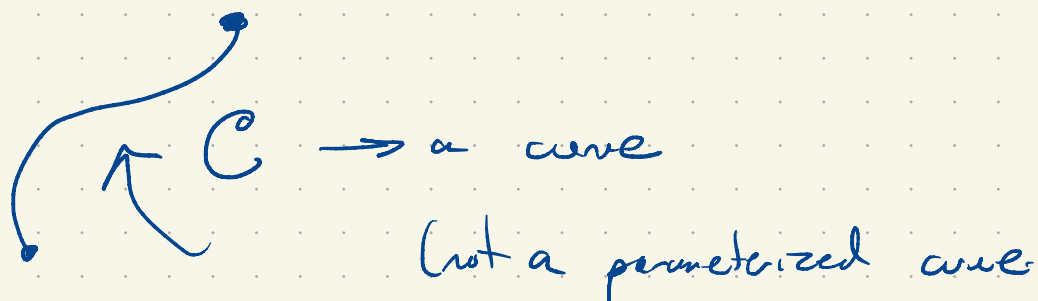 C → a curve
(not a parameterized curve